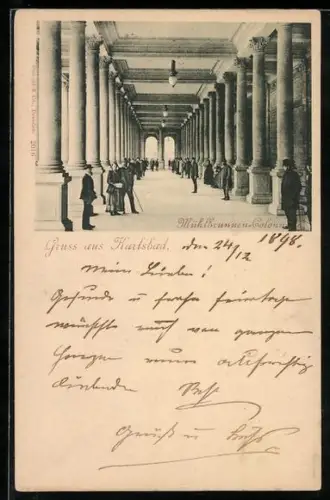 Mühlbrunnen-Colonn
Gruss aus Karlsbad, den 24/12 1898.
Meine Lieben!
Gesunde u frohe Feiertage
wünscht euch von ganzem
Herzen euer aufrichtig
liebender
Gruß u Kuß
2016